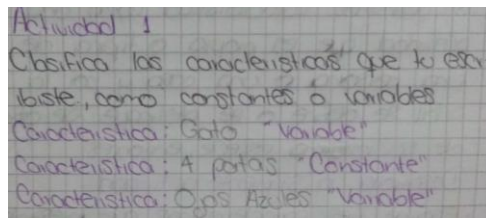 Actividad 1
Clasifica las características que tu escr
ibiste, como constantes o variables
Característica: Gato "Variable"
Característica: 4 patas "Constante"
Característica: Ojos Azules "Variable"